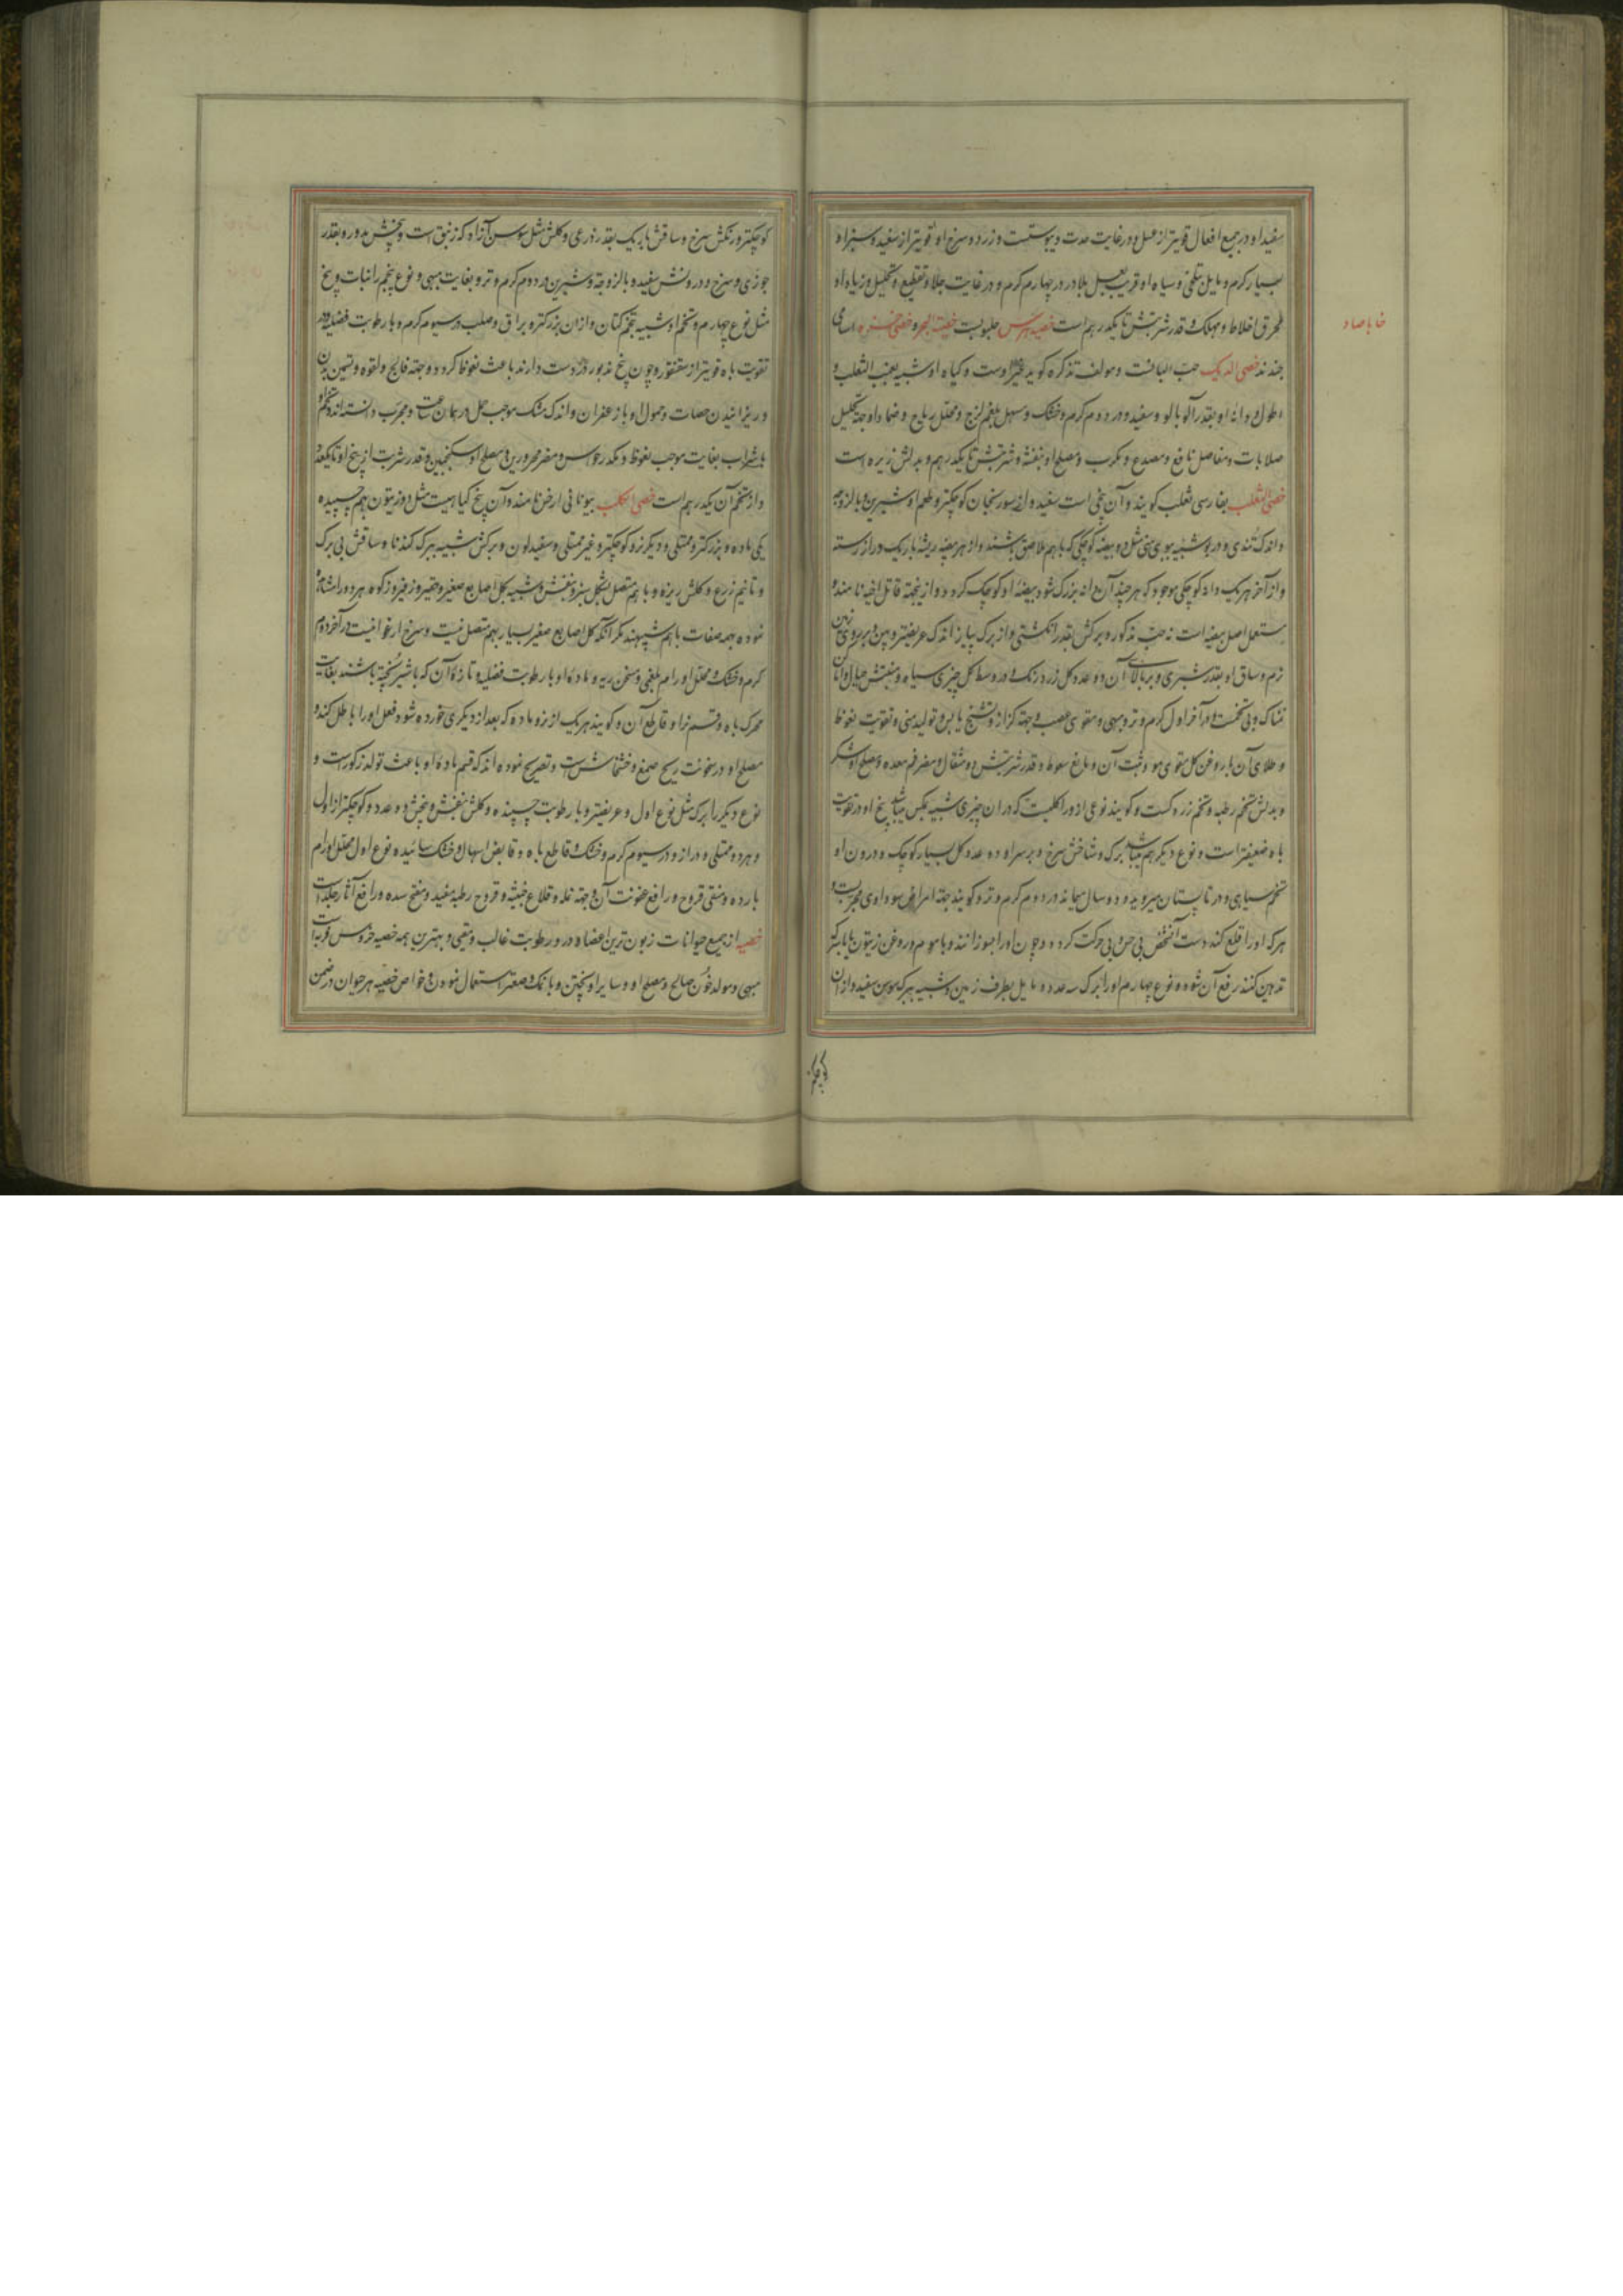 سفید او در جمیع افعال قویتر از عسل و در غایت حدت و یبوستست و زرد و سرخ او قویتر از سفید و سبز او
بسیار گرم و مایل بتلخی و سیاه او قریب بعسل بلادر در چهارم گرم و در غایت جلا و تقطیع و تحلیل و زیاده او
محرق اخلاط و مهلک و قدر شربتش تا یکدرهم است خصیه هرمس حلبوبست خصیة البحر و خصی اسامی
خا با صاد
جندند خصی الدیک حب البانست و مولف تذکره کوید غیر اوست و کیاه او شبیه بعنب الثعلب و
اطول و دانه او بقدر آلوبالو و سفید و در دوم گرم و خشک و مسهل بلغم لزج و محلل ریاح و ضماد او جهة تحلیل
صلابات و مفاصل نافع و مصدع و مکرب و مصلح او بنفشه و شربتش تا یکدرهم و بدلش زیره است
خصی الثعلب بفارسی ثعلب کویند و آن بیخی است سفید و از سورنجان کوچکتر و طعم او شیرین و با لزوجه
و اندک تندی و در بو شبیه ببوی منی مثل دو بیضه کوچکی که با هم ملاصق باشند و از هر بیضه ریشه باریک دراز رسته
و از آخر هر یک دانه کوچکی موجود که هر چند آن دانه بزرک شود بیضه او کوچک کردد و از اینجهة قاتل اخیه نامند و
مستعمل اصل بیضه است نه حب مذکور و برکش بقدر انکشتی و از برک پیاز اندک عریضتر و پهن بر روی زمین
نرم و ساق او بقدر شبری و بر بالای آن دو عدد کل زرد رنک و در وسط کل چیزی سیاه و منبتش جبال و اماکن
نمناک و بی تخمست در آخر اول گرم و تر و مبهی و مقوی عصب و جهة کزاز و تشنج یابس و تولید منی و تقویت نعوظ
و طلای آن با روغن کل مقوی مو و مثبت آن و مانع سقوط و قدر شربتش دو مثقال و مضر فم معده و مصلح او شکر
و بدلش تخم رطبه و تخم زردکست و کویند نوعی از ورا کلیست که در آن چیزی شبیه بمکس میباشد بیخ او در تقویت
باه ضعیفتر است و نوع دیکر هم میباشد برک و شاخش سرخ و بر سر او ده عدد کل بسیار کوچک و درون او
تخم سیاهی و در تابستان میروید و دو سال میماند در دوم گرم و تر و کویند جهة امراض سوداوی مجربست و
هر که او را قلع کند دست آنشخص بی حس و بی حرکت کردد و چون او را بسوزانند و با موم و روغن زیتون یا بابکر
تدهین کنند رفع آن شود و نوع چهارم او را برک سه عدد و مایل بطرف زمین و شبیه ببرک سوسن سفید و از آن
کوچکتر
کوچکتر و رنکش سرخ و ساقش باریک بقدر ذرعی و کلش مثل سوسن آزاد که زنبق است و بیخش مدور و بقدر
جوزی و سرخ و درونش سفید و با لزوجة و شیرین در دوم گرم و تر و بغایت مبهی و نوع پنجم را نبات و بیخ
مثل نوع چهارم و تخم او شبیه بتخم کتان و از آن بزرکتر و براق و صلب در سیوم گرم و با رطوبت فضلیه و در
تقویت باه قویتر از سقنقور و چون بیخ مذبور در دست دارند باعث نعوظ کردد و جهة فالج و لقوه و تسمین بدن
و ریزانیدن حصات و حمول او با زعفران و اندک مشک موجب حمل در همان ساعت و مجرب دانسته‌اند و تخم او
با شراب بغایت موجب نعوظ و مکدر حواس و مضر محرورین و مصلح او سکنجبین و قدر شربت از بیخ او تا یکعدد
و از تخم آن یکدرهم است خصی الکلب بیونانی ارخن نامند و آن بیخ کیاهیست مثل دو زیتون بهم چسپیده
یکی ماده و بزرکتر و ممتلی و دیکر نر و کوچکتر و غیر ممتلی و سفید لون و برکش شبیه ببرک کندنا و ساقش بی برک
و تا نیم زرع و کلش ریزه و با هم متصل بشکل سنبل و بنفش و شبیه بکل اصابع صغیر و حقیر و زفیروزکوه هر دو را مشاهده
نموده بهمه صفات با هم شبیهند مکر آنکه کل اصابع صغیر بسیار بهم متصل نیست و سرخ ارغوانیست در آخر دوم
گرم و خشک و محلل اورام بلغمی و مسخن ریه و ماده او با رطوبت فضلیه و تازه آن که با شیر پخته باشند بغایت
محرک باه و قسم نر او قاطع آن و کویند هر یک از نر و ماده که بعد از دیکری خورده شود فعل او را باطل کند و
مصلح او در خشونت ریح صمغ و خشخاش است و تصریح نموده‌اند که قسم ماده او باعث تولد ذکورست و
نوع دیکر را برک مثل نوع اول و عریضتر و با رطوبت چسپنده و کلش بنفش و بیخش دو عدد و کوچکتر از اول
و هر دو ممتلی و دراز و در سیوم گرم و خشک و قاطع باه و قابض اسهال و خشک سائیده نوع اول محلل اورام
بارده و منقی قروح و رافع عفونت آن و جهة نمله و قلاع خبیثه و قروح رطبه مفید و مفتح سده و رافع آثار جلد است
خصیه از جمیع حیوانات زبون ترین اعضا و در و رطوبت غالب و بتقی و بهترین همه خصیه خروس فربه است
مبهی و مولد خون صالح و مصلح او و سایر او پختن و با نمک و صعتر استعمال نمودن و خواص خصیه هر حیوان در ضمن